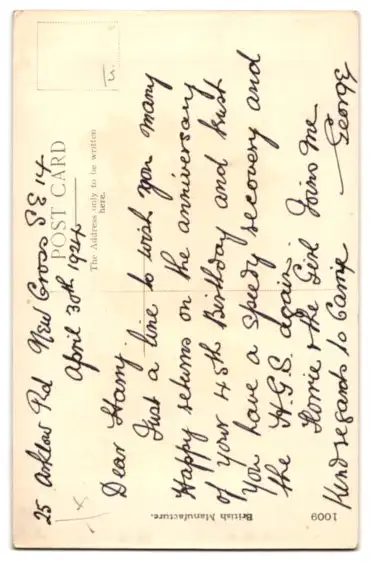 25 Ashlow Rd New Cross SE 14
April 30th 1924
POST CARD
The Address only to be written
here.
Dear Harry.
Just a line to wish you many
Happy returns on the anniversary
of your 45th Birthday and trust
You have a speedy recovery and
the H.G.S. again.
Florrie & the Girl Joins me
Kind regards to Camie
George
British Manufacture.
1009